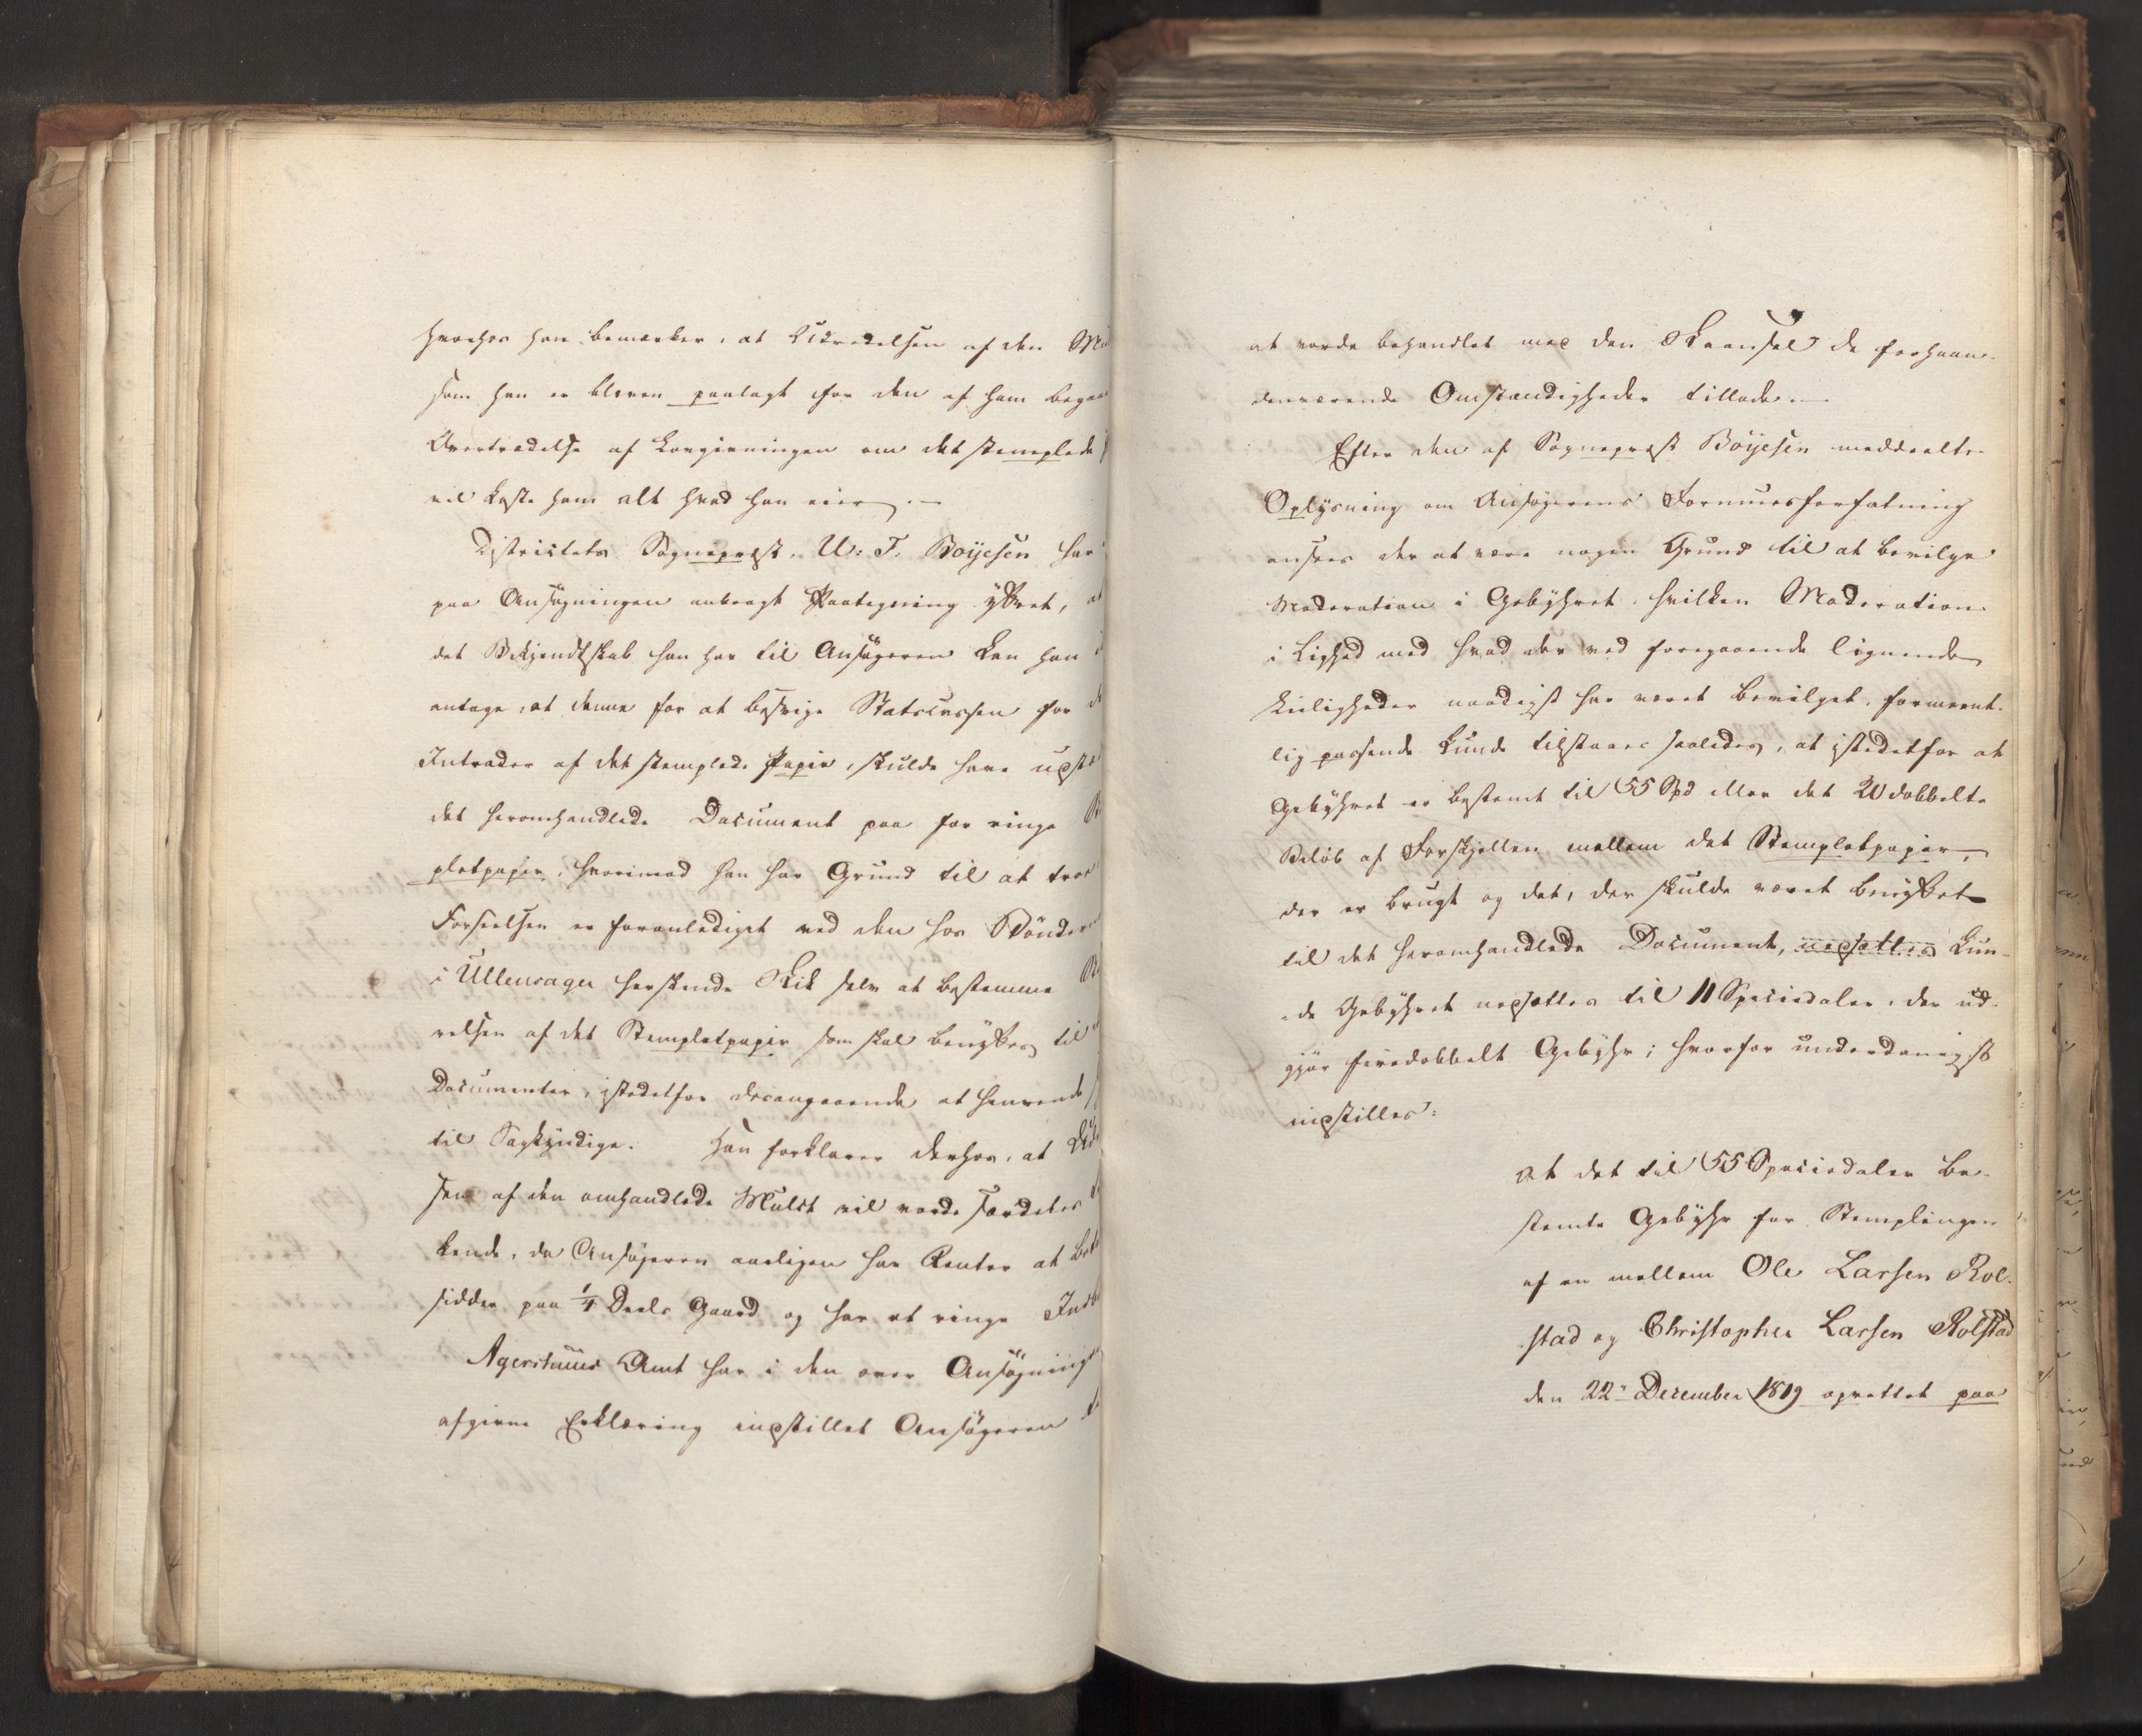 hvorhos han bemærker, at Udredelsen af den Mu
som han er bleven paalagt for den af ham begaa
Overtrædelse af Lovgivningen om det stemplede
vil koste ham alt hvad han eier.—
Districtets Sognepræst, U: F: Boyesen har
paa Ansøgningen anbragt Paategning yttret, at
det Bekjendtskab han har til Ansøgeren kan han
antage, at denne for at besvige Statscassen for
Intrader af det stemplede Papir, skulde have
det heromhandlede Document paa for ringe
pletpapir, hvorimod han har Grund til at troe
Forseelsen er foranlediget ved den hos Bönder
i Ullensager herskende Skik selv at bestemme
relsen af det Stempletpapir som skal benyttes til
Documenter, istedetfor desangaaende at henvende
til Sagkyndige. Han forklarer derhos, at
sen af den omhandlede Mulct vil vorde særdeles
kende, da Ansøgeren aarligen har Renter at
sidder paa 1/4 Deels Gaard og har et ringe
Agershuus Amt har i den over Ansøgning
afgivne Erklæring indstillet Ansøgeren
at vorde behandlet med den Skaansel de forhaan-
denværende Omstændigheder tillade.—
Efter den af Sognepræst Boyesen meddeelte
Oplysning om Ansøgerens Formuesforfatning
ansees der at være nogen Grund til at bevilge
Moderation i Gebyhret, hvilken Moderation
i Lighed med hvad der ved foregaaende lignende
Leiligheder naadigst har været bevilget, formeent-
lig passende kunde tilstaaes saaledes, at istedetfor at
Gebyhret er bestemt til 55 Spd eller det 20 dobbelte
Beløb af Forskjellen mellem det Stempletpapir,
der er brugt og det, der skulde været benyttet
til det heromhandlede Document, nedsættes kun-
de Gebyhret nedsættes til 11 Speciedaler, der ud-
gjør firedobbelt Gebyhr; hvorfor underdanigst
indstilles:
At det til 55 Speciedaler be-
stemte Gebyhr for Stemplingen
af en mellem Ole Larsen Rol-
stad og Christopher Larsen Rolstad
den 22de December 1819 oprettet paa